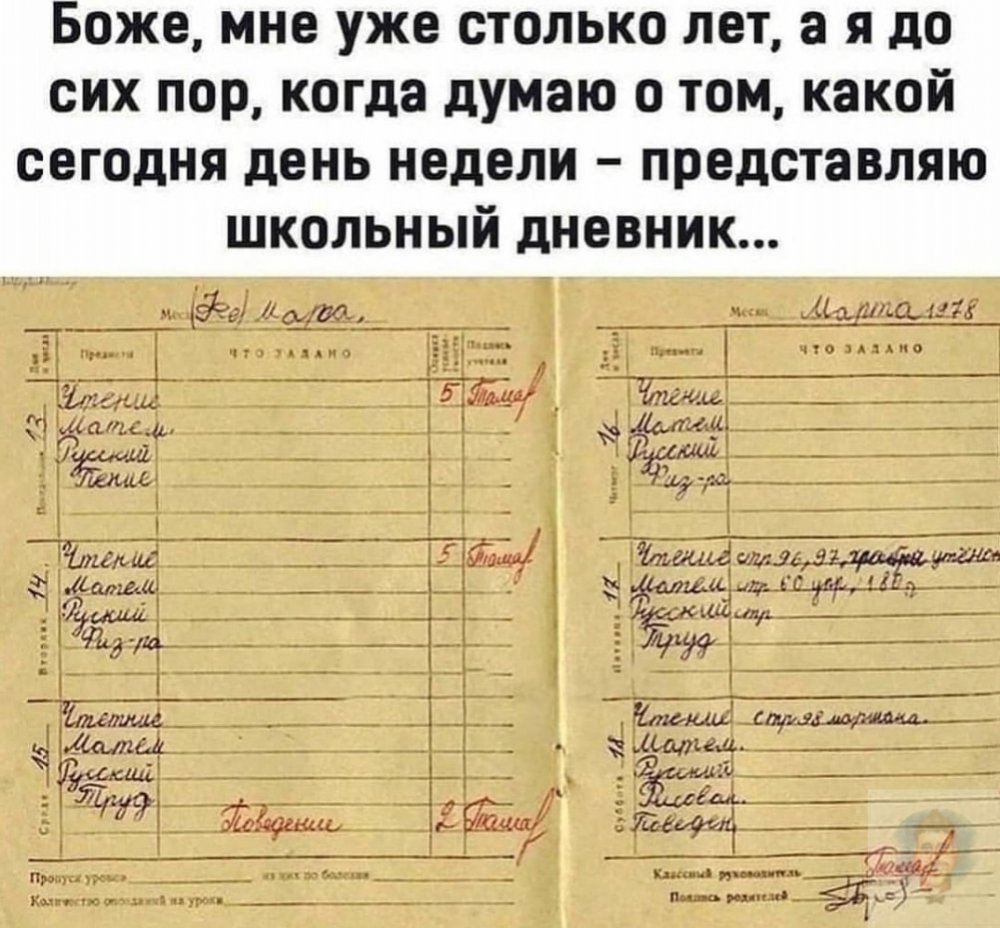 Боже, мне уже столько лет, а я до
сих пор, когда думаю о том, какой
сегодня день недели – представляю
школьный дневник...
(Не) Марта.
Предметы ЧТО ЗАДАНО Подпись учителя
Понедельник 13
Чтение 5
Матем.
Русский
Пение
Вторник 14
Чтение 5
Матем
Руский
Физ-ра
Среда 15
Чтетние
Матем
Русский
Труд
Поведение 2
Пропуск уроков из них по болезни
Количество опозданий на уроки
Месяц Марта 1978
Дни и числа Предметы ЧТО ЗАДАНО
Четверг 16
Чтение
Матем
Русский
Физ-ра
Пятница 17
Чтение стр 96, 97, утёнок
Матем стр. 60 упр, 180
Русский стр
Труд
Суббота 18
Чтение стр 98
Матем.
Русский
Рисован.
Поведен
Классный руководитель
Подпись родителей